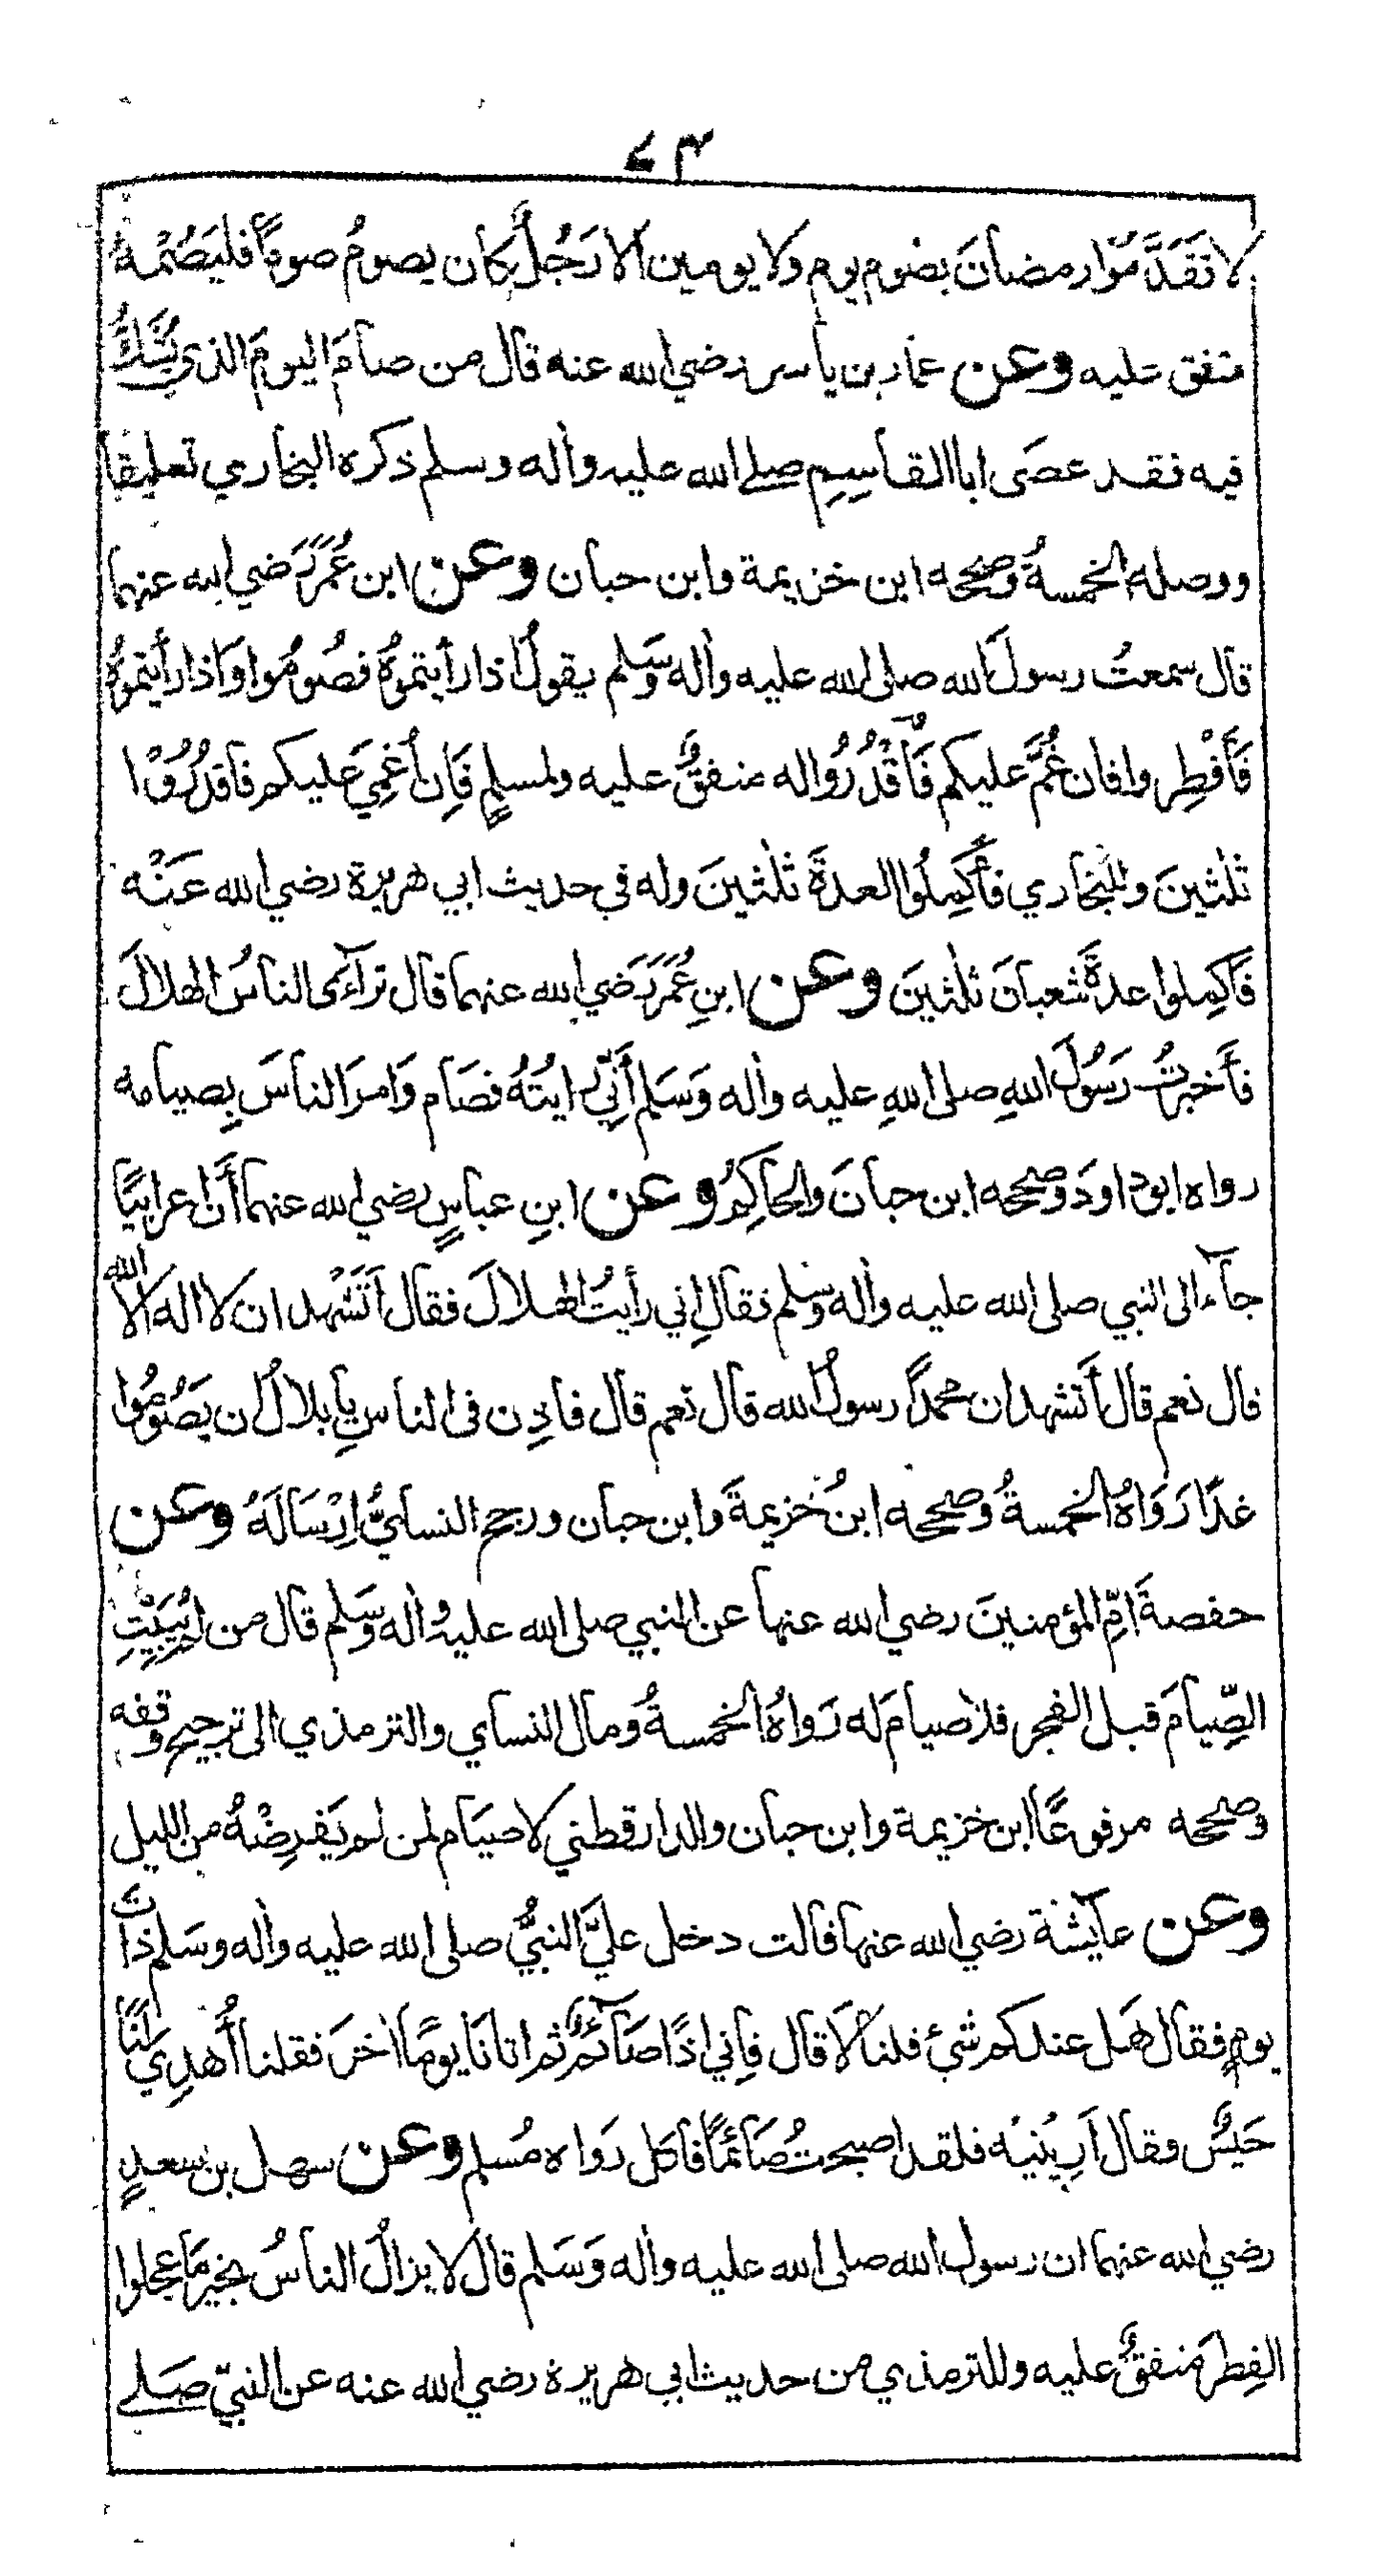 ٧٣
لا تَقَدَّمُوا رمضانَ بصَومِ يومٍ ولا يومين الا رَجُلٌ كان يصومُ صومًا فليَصُمْهُ
متفق عليه وعن عمار بن ياسر رضي الله عنه قال من صامَ اليومَ الذي يُشَكُّ
فيه فقد عصَى ابا القاسِمِ صلى الله عليه واٰله وسلم ذكره البخاري تعليقا
ووصله الخمسةُ وصححه ابن خزيمة وابن حبان وعن ابن عُمَرَ رَضي الله عنهما
قال سمعتُ رسولَ الله صلى الله عليه واٰله وسَلم يقولُ اذا رأيتموهُ فصُومُوا وَاذا رأيتموهُ
فَأَفْطِروا فان غُمَّ عليكم فَاقْدُرُوا له متفقٌ عليه ولمسلمٍ فَاِن أُغمِيَ عَليكم فاقدُرُوْا
ثلٰثينَ وللبخاري فأكمِلُوا العدةَ ثلٰثينَ وله في حديث ابي هريرة رضي الله عَنْه
فَأكمِلوا عدةَ شعبانَ ثلٰثينَ وعن ابنِ عُمَرَ رَضي الله عنهما قال ترآءَى الناسُ الهلالَ
فأخبرتُ رَسُولَ اللهِ صلى اللهِ عليه واٰله وَسَلم أَنِّي رايتُهُ فصَام وَامرَ الناسَ بِصيامه
رواه ابوداودَ وصححه ابن حبانَ والحاكِمُ وعن ابنِ عباسٍ رضي الله عنهما أَنَّ اعرابيًا
جآء الى النبي صلى الله عليه واٰله وسَلم فقال اِني رأيتُ الهلالَ فقال أتَشْهد ان لا اله الا الله
قال نعم قال أتشهد ان محمدًا رسولُ الله قال نعم قال فاذِن في الناسِ يا بلالُ ان يصُومُوا
غدًا رَوَاهُ الخمسةُ وصححه ابنُ خزيمةَ وابن حبان ورجح النسايُّ اِرْسَالَهُ وعن
حفصةَ امِّ المؤمنينَ رضي الله عنها عن النبي صلى الله عليه واٰله وسَلم قال من لم يُبَيِّتِ
الصِّيامَ قبل الفجر فلا صيامَ له رَواهُ الخمسةُ ومال النساي والترمذي الى ترجيح وقفه
وصححه مرفوعًا ابن خزيمة وابن حبان والدارقطني لا صيَام لمن لم يَفرِضْهُ من الليل
وعن عآيشة رضي الله عنها قالت دخل عليَّ النبيُّ صلى الله عليه واٰله وسَلم ذاتَ
يومٍ فقال هَل عندكم شئ قلنا لَا قال فاِني اذًا صَآئمٌ ثم اتانَا يومًا اٰخرَ فقلنا أُهدِيَ لَنَا
حَيسٌ فقال أَرِينيْه فلقد اصبحتُ صَآئمًا فاكل رَواه مُسلم وعن سهل بن سعدٍ
رضي الله عنهما ان رسول الله صلى الله عليه واٰله وَسَلم قال لا يزالُ الناسُ بخيرٍ مَا عجلوا
الفِطرَ متفقٌ عليه وللترمذي من حديث ابي هريرة رضي الله عنه عن النبيّ صَلى